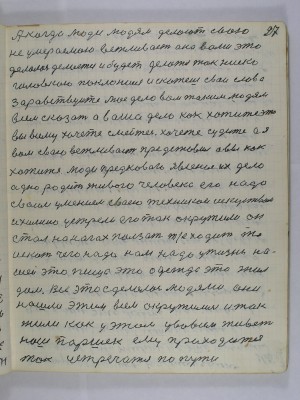 27
А когда люди людям делают свою
не умераемою ветливаст ако вам это
делалась делается и будет делатся так низко
головкою поклонился и скотем свои слова
здраствуйте мое дело вам таким людям
всем сказат а ваша дело как хотите это
вы вижу хочете смейтес хочете судите а я
вам свою ветливаст представил а вы как
хотите люди предковаго явления их дело
адно родит живого человека его надо
своим умением своею техникою искуством
и химию устроит его так окружили он
стал на ногах ползат т/е ходит т/е
искат чего надо нам надо у жизнь на-
шей это пища это одежда это жил
дом. Все это сделалос людями они
нашли этим всем окружили и так
жили как у этом условии живет
наш Паршек ему приходится
так встречатя по пути